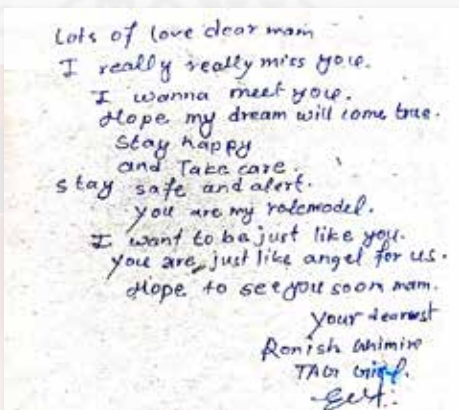 Lots of love dear mam
I really really miss you.
I wanna meet you.
Hope my dream will come true.
Stay happy
and Take care.
stay safe and alert.
you are my rolemodel.
I want to be just like you.
you are just like angel for us.
Hope to see you soon mam.
Your dearest
Ronish Ghimire